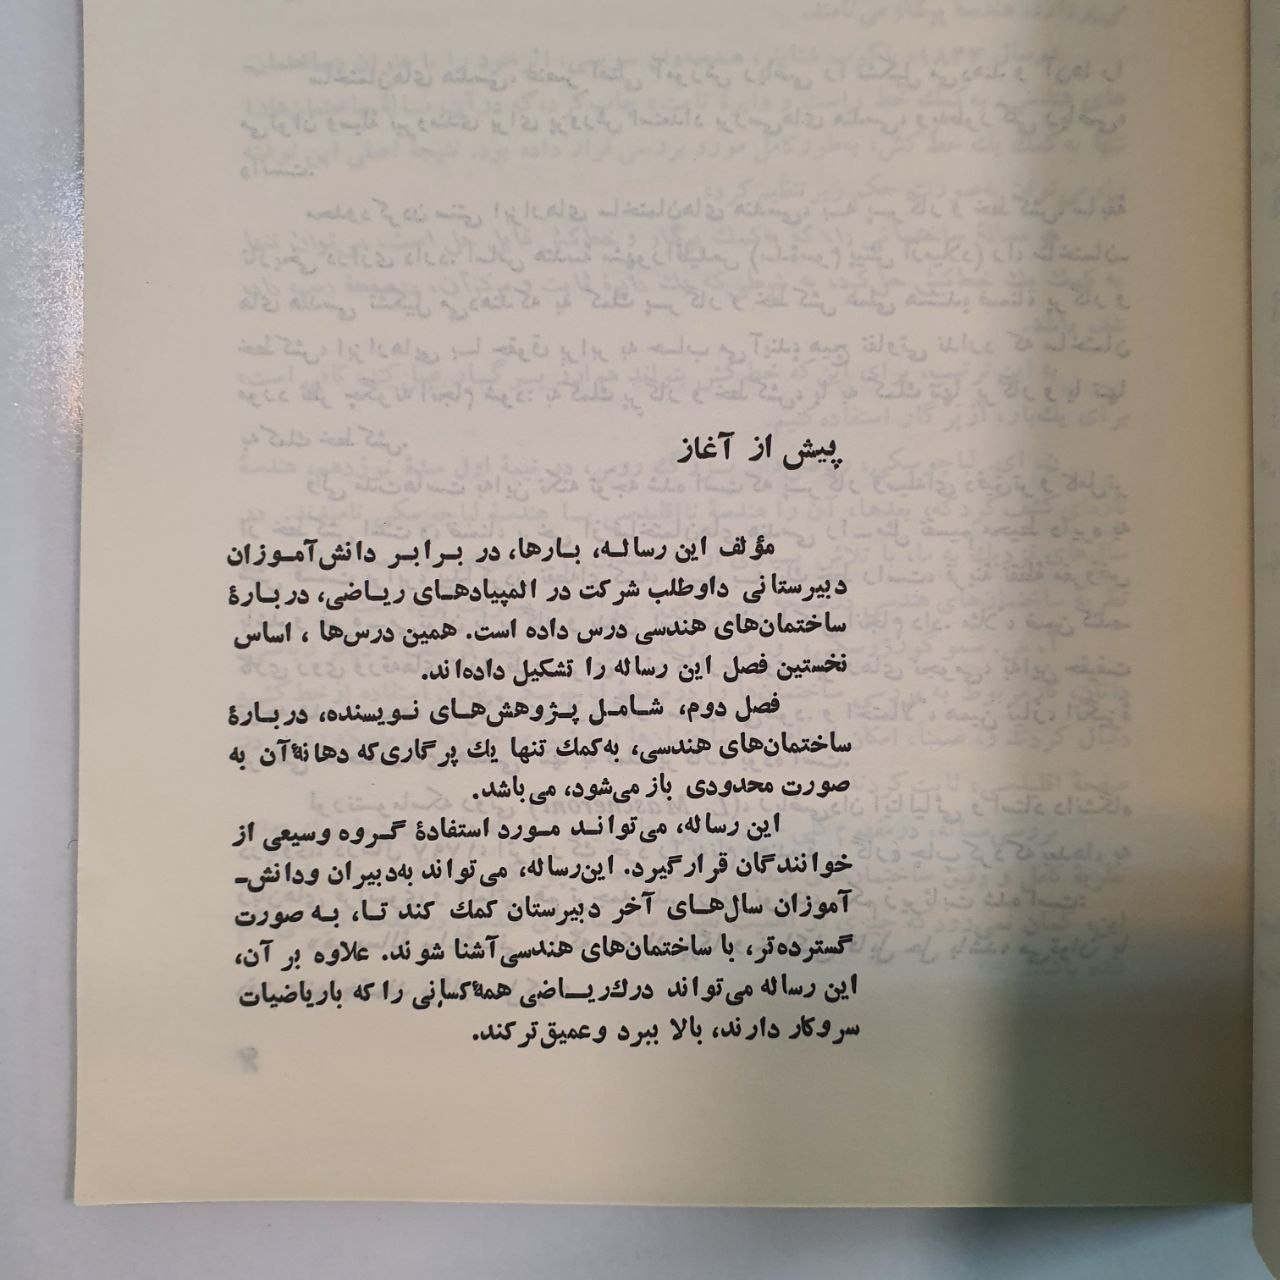 پیش از آغاز
مؤلف این رساله، بارها، در برابر دانش‌آموزان
دبیرستانی داوطلب شرکت در المپیادهای ریاضی، دربارهٔ
ساختمان‌های هندسی درس داده است. همین درس‌ها ، اساس
نخستین فصل این رساله را تشکیل داده‌اند.
فصل دوم، شامل پژوهش‌های نویسنده، دربارهٔ
ساختمان‌های هندسی، به‌کمك تنها یك پرگاری‌که دهانهٔ‌آن به
صورت محدودی باز می‌شود، می‌باشد.
این رساله، می‌تواند مورد استفادهٔ گروه وسیعی از
خوانندگان قرارگیرد. این‌رساله، می‌تواند به‌دبیران ودانش-
آموزان سال‌های آخر دبیرستان کمك کند تا، به صورت
گسترده‌تر، با ساختمان‌های هندسی‌آشنا شوند. علاوه بر آن،
این رساله می‌تواند درك‌ریاضی همهٔ‌کسانی را که باریاضیات
سروکار دارند، بالا ببرد وعمیق‌ترکند.